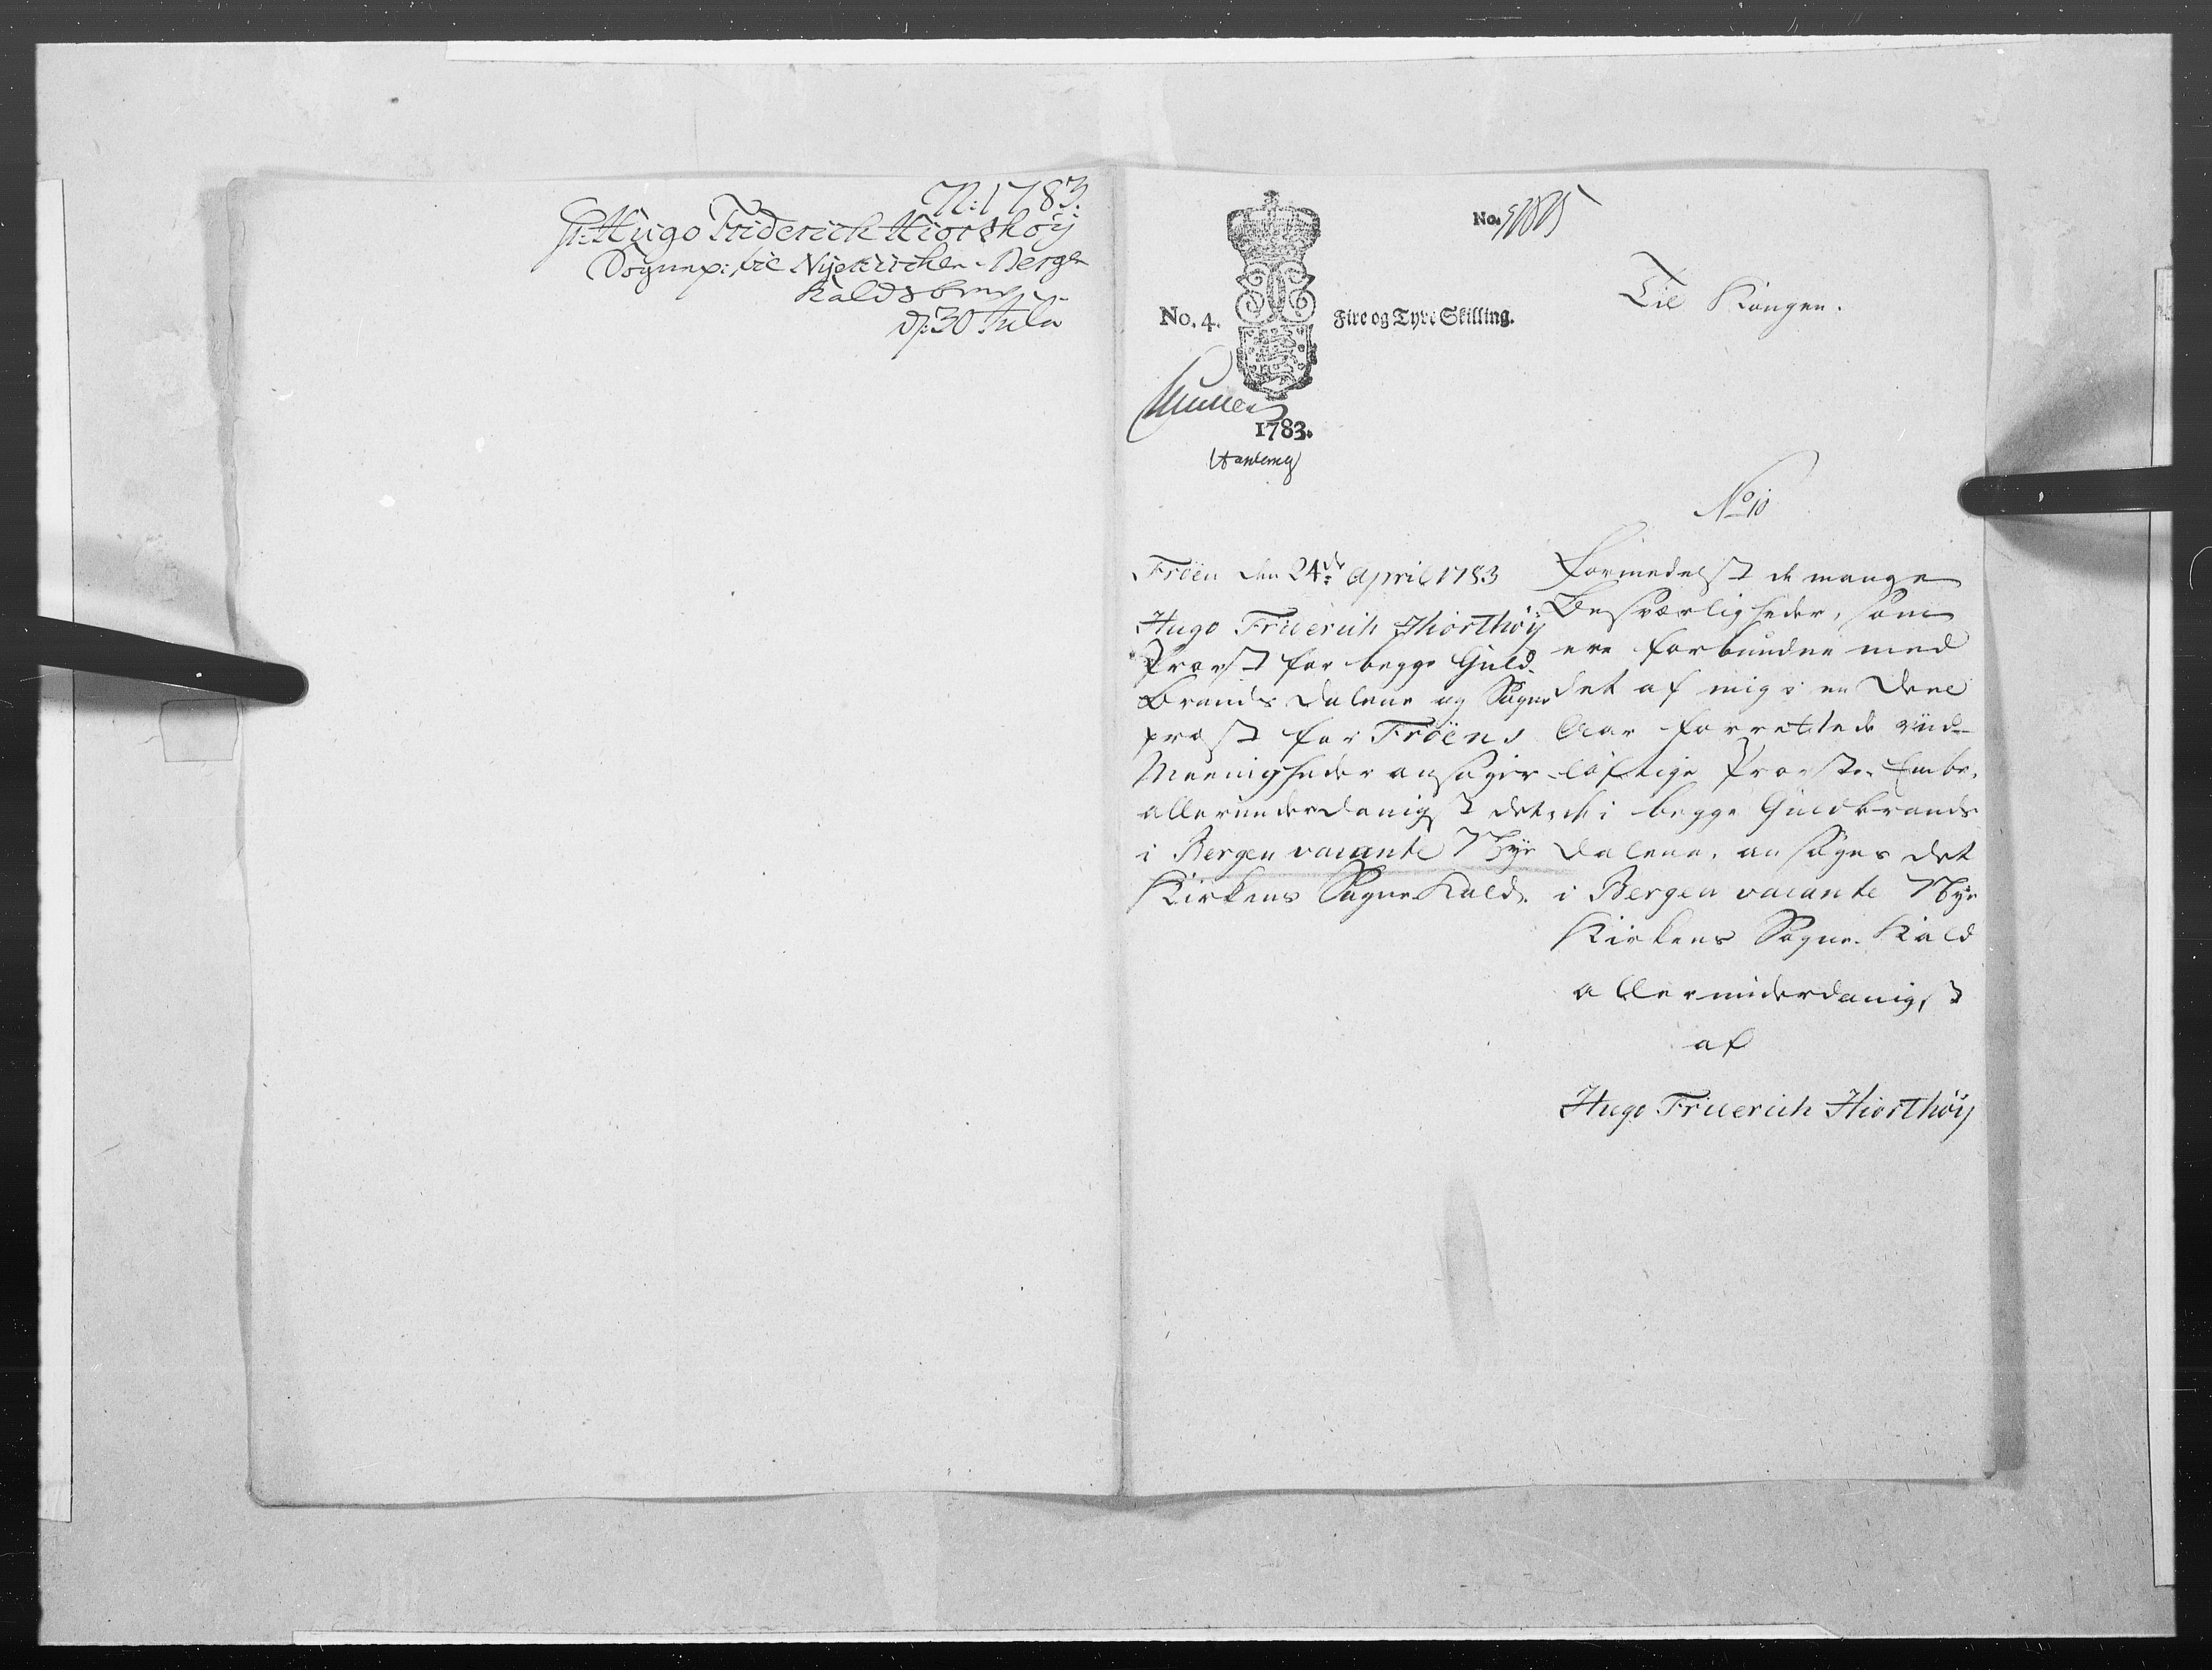 N: 1783.
Hr: Hugo Friderich Hiorthöy
Sognepr: til Nyekirchen i Bergen
Kaldsbrev
d: 30 Julii
No.
Til Kongen.
No. 4. Fire og Tyve Skilling.
1783.
No 10
Fröen den 24de April 1783
Hugo Friderich Hiorthöy
Provst for begge Guld-
brands Dalene og Sogne
præst for Fröens
Meenigheder ansøger
allerunderdanigst det
i Bergen vacante Nye
Kirkens Sogne Kald.
Formedelst de mange
Besværligheder, som
ere forbundne med
det af mig i en Deel
Aar forrettede vidt-
løftige Provste-Embe-
de i begge Guldbrands
Dalene, ansøges det
i Bergen vacante Nye
Kirkens Sogne-Kald
allerunderdanigst
af
Hugo Friderich Hiorthöy